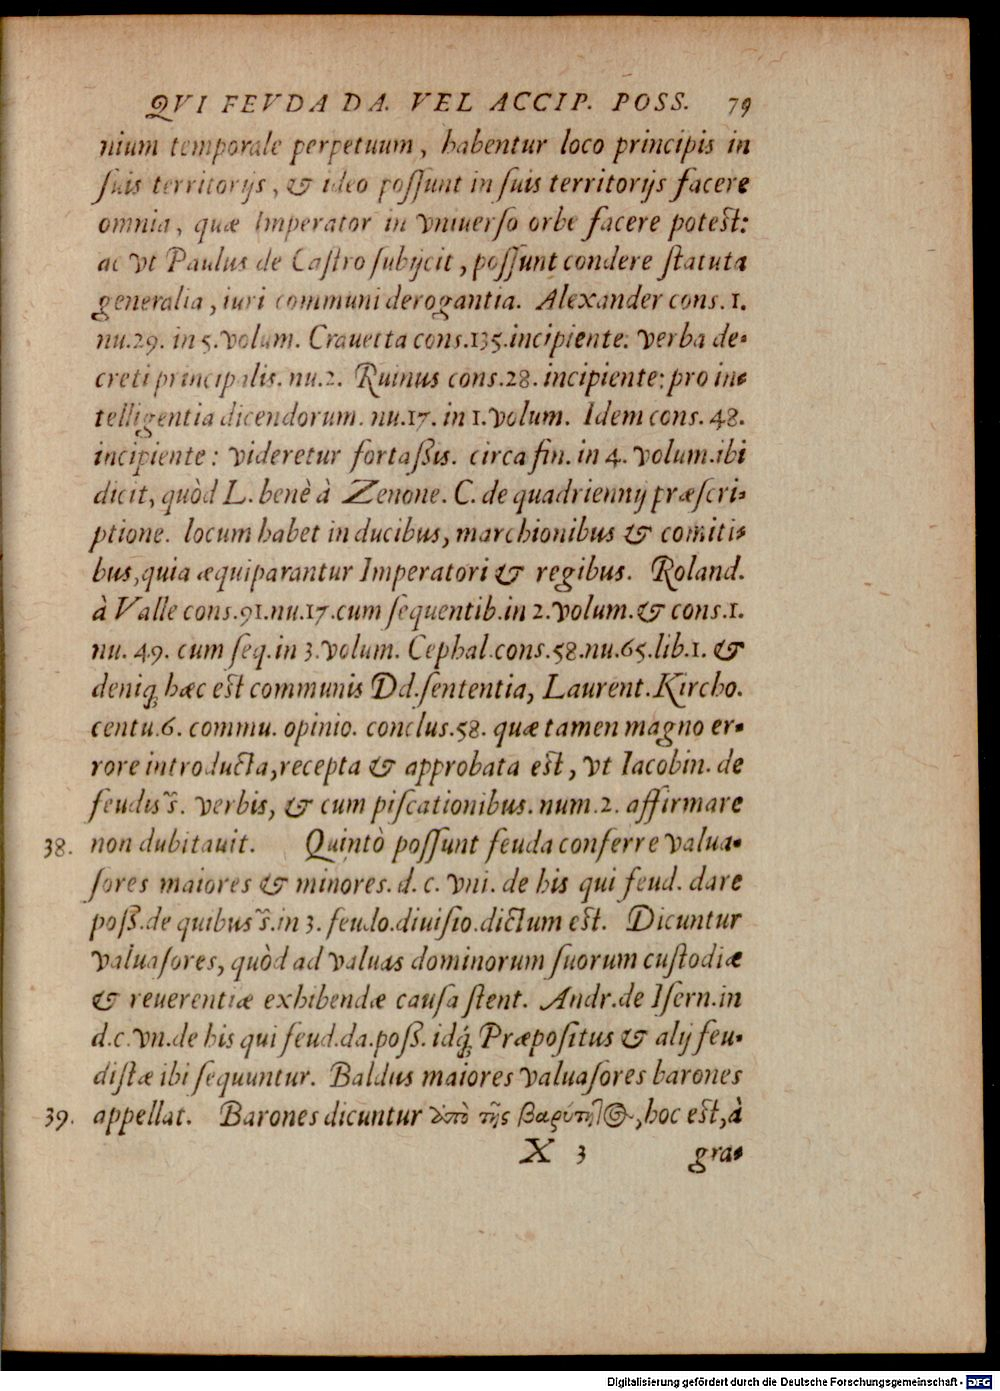 QVI FEVDA DA. VEL ACCIP. POSS. 79
nium temporale perpetuum, habentur loco principis in
ſuis territorijs, & ideo poſſunt in ſuis territorijs facere
omnia, quæ Imperator in vniuerſo orbe facere poteſt:
ac vt Paulus de Caſtro ſubijcit, poſſunt condere ſtatuta
generalia, iuri communi derogantia. Alexander conſ. 1.
nu.29. in 5. volum. Crauetta conſ.135. incipiente: verba de-
creti principalis. nu.2. Ruinus conſ.28. incipiente: pro in-
telligentia dicendorum. nu.17. in 1. volum. Idem conſ. 48.
incipiente: videretur fortaßis. circa fin. in 4. volum. ibi
dicit, quòd L. benè à Zenone. C. de quadriennij præſcri-
ptione. locum habet in ducibus, marchionibus & comiti-
bus, quia æquiparantur Imperatori & regibus. Roland.
à Valle conſ.91.nu.17.cum ſequentib.in 2.volum. & conſ.1.
nu. 49. cum ſeq. in 3.volum. Cephal.conſ.58.nu.65.lib.1. &
deniq; hæc eſt communis Dd.ſententia, Laurent.Kircho.
centu.6. commu. opinio. concluſ.58. quæ tamen magno er-
rore introducta, recepta & approbata eſt, vt Iacobin. de
feudis §. verbis, & cum piſcationibus. num.2. affirmare
38. non dubitauit. Quintò poſſunt feuda conferre valua-
ſores maiores & minores. d. c. vni. de his qui feud. dare
poß. de quibus §. in 3. feudo.diuiſio.dictum eſt. Dicuntur
valuaſores, quòd ad valuas dominorum ſuorum cuſtodiæ
& reuerentiæ exhibendæ cauſa ſtent. Andr. de Iſern. in
d.c. vn.de his qui feud.da.poß. idq́; Præpoſitus & alij feu-
diſtæ ibi ſequuntur. Baldus maiores valuaſores barones
39. appellat. Barones dicuntur ἀπὸ τῆς βαρύτητος, hoc eſt, à
X 3 gra-
Digitalisierung gefördert durch die Deutsche Forschungsgemeinschaft - DFG